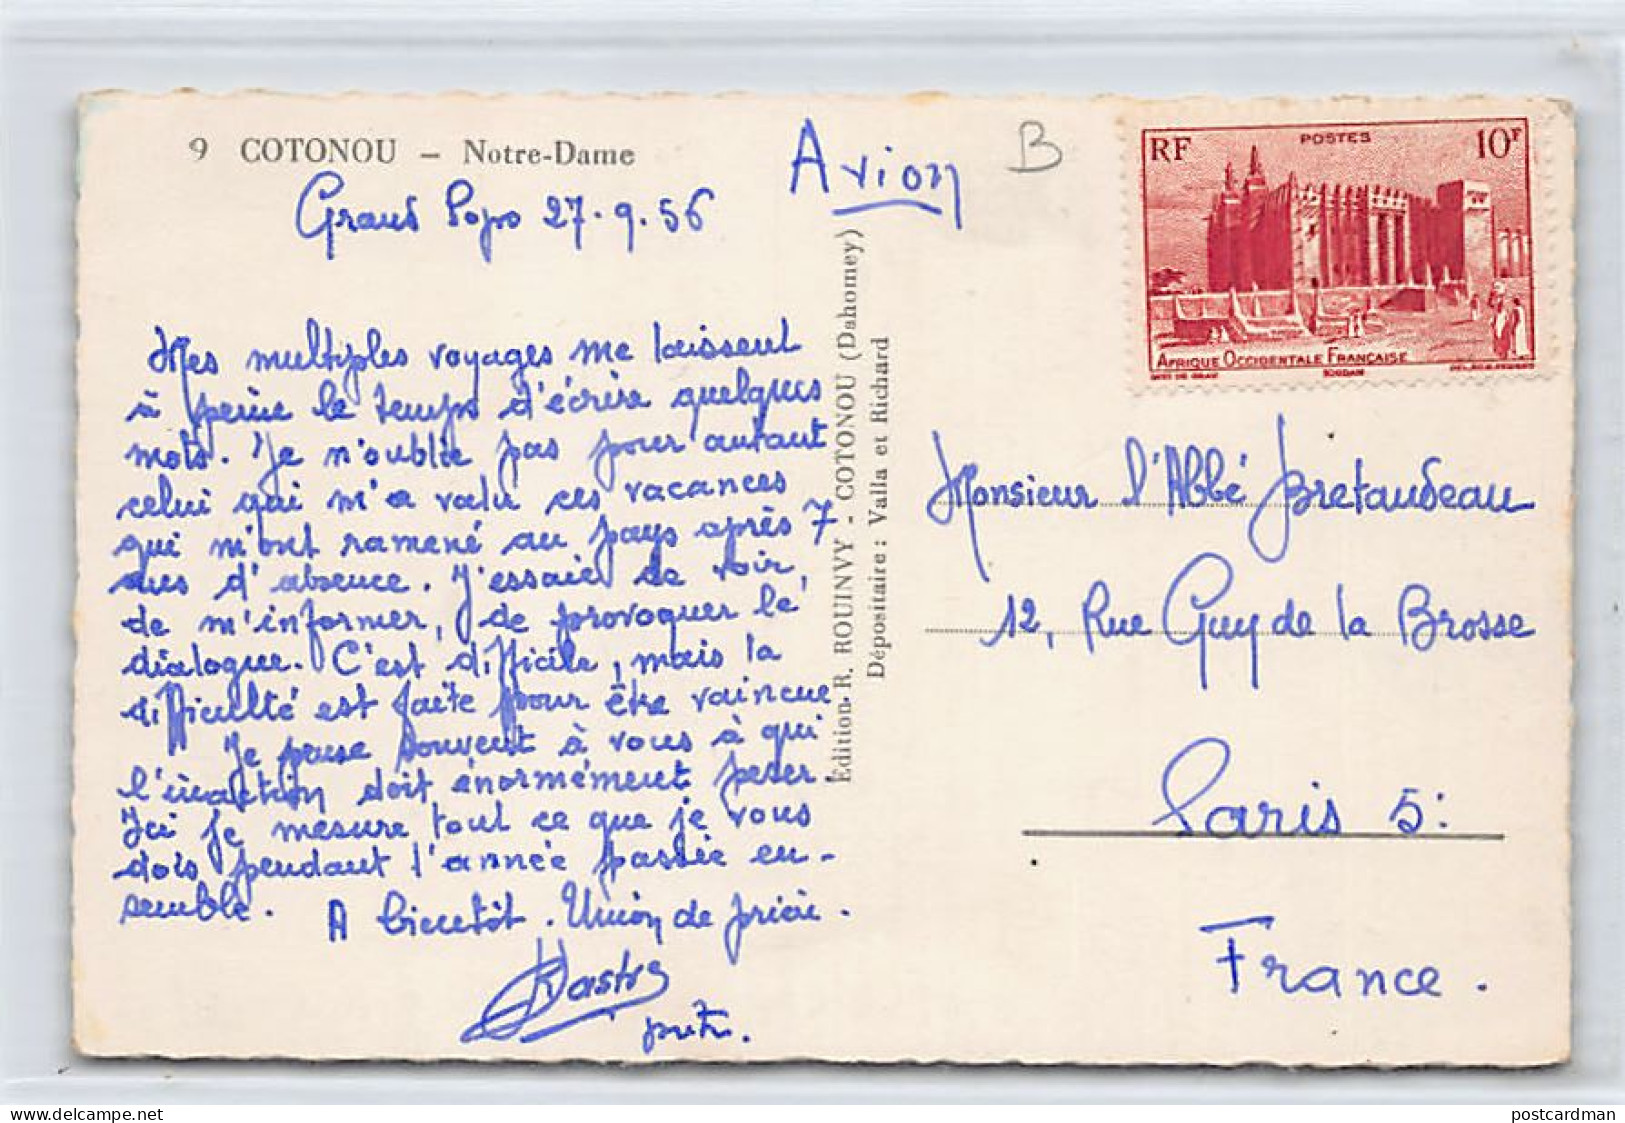 9 COTONOU – Notre-Dame
Grand Popo 27.9.56
Avion
B
RF POSTES 10F
AFRIQUE OCCIDENTALE FRANÇAISE
SOUDAN
Mes multiples voyages me laissent
à peine le temps d'écrire quelques
mots. Je n'oublie pas pour autant
celui qui m'a valu ces vacances
qui m'ont ramené au pays après 7
ans d'absence. J'essaie de voir,
de m'informer, de provoquer le
dialogue. C'est difficile, mais la
difficulté est faite pour être vaincue
Je pense souvent à vous à qui
l'inaction doit énormément peser.
Ici je mesure tout ce que je vous
dois pendant l'année passée en-
semble. A bientôt. Union de prière.
prêtre.
Édition R. ROUINVY - COTONOU (Dahomey)
Dépositaire : Valla et Richard
Monsieur l'Abbé Bretaudeau
12, Rue Guy de la Brosse
Paris 5:
France.
postcardman